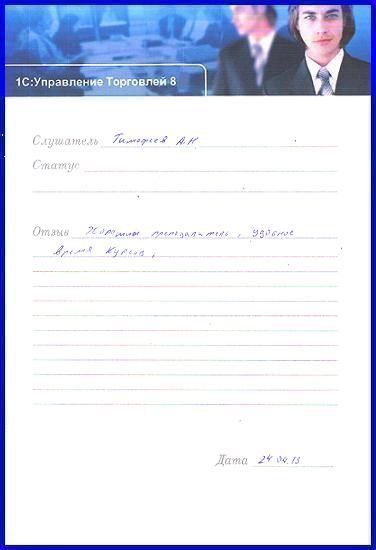 1С:Управление Торговлей 8
Слушатель Тимофеев А.Н.
Статус
Отзыв Хороший преподаватель, удобное
время курсов.
Дата 24.04.13